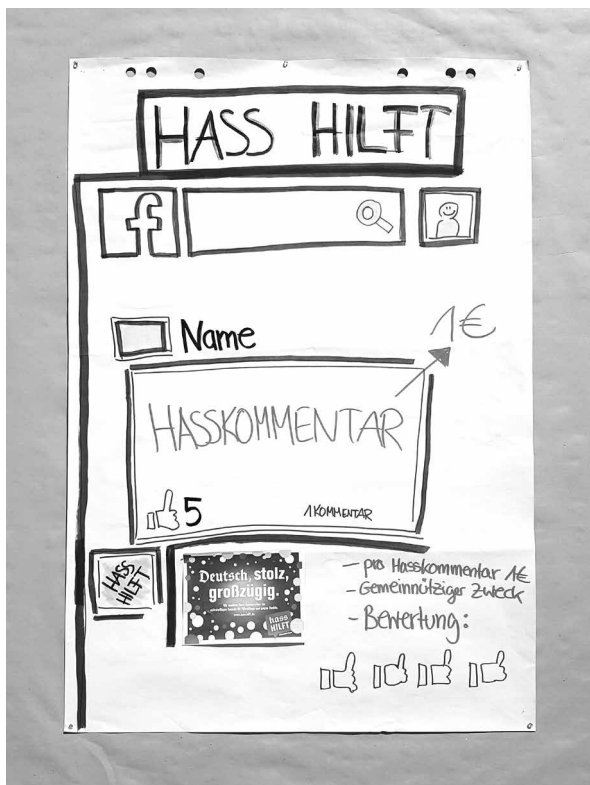 HASS HILFT
f
Name
1€
HASSKOMMENTAR
5
1 KOMMENTAR
HASS
HILFT
Deutsch, stolz,
großzügig.
hass
HILFT
- pro Hasskommentar 1€
- Gemeinnütziger Zweck
- Bewertung: